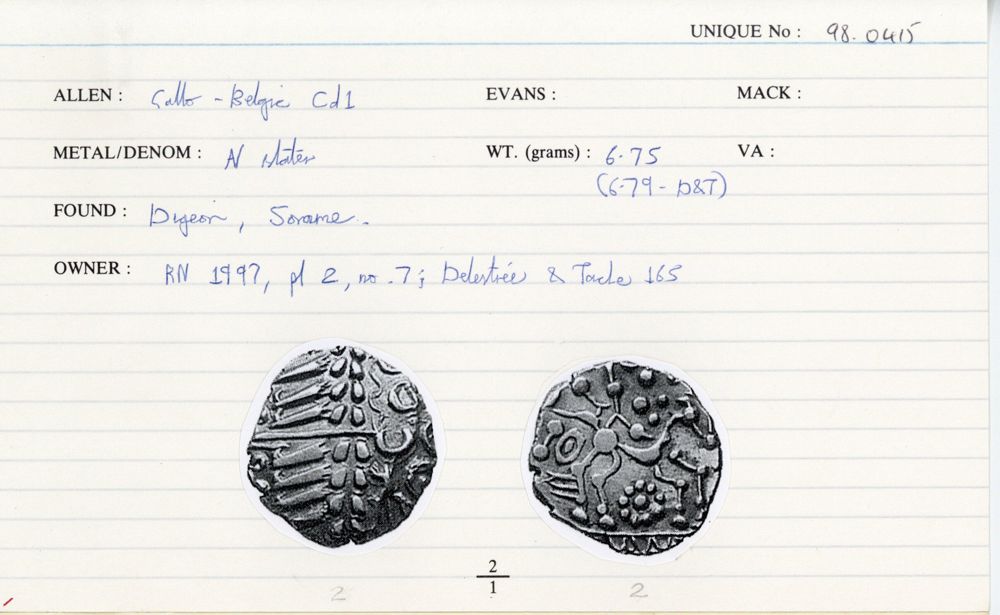 UNIQUE No : 98.0415
ALLEN : Gallo-Belgic Cd1 EVANS : MACK :
METAL/DENOM : N stater WT. (grams) : 6.75 VA :
(6.79 - D&T)
FOUND : Digeon, Somme.
OWNER : RN 1997, pl 2, no. 7; Delestrée & Tache 165
2
1
2 2